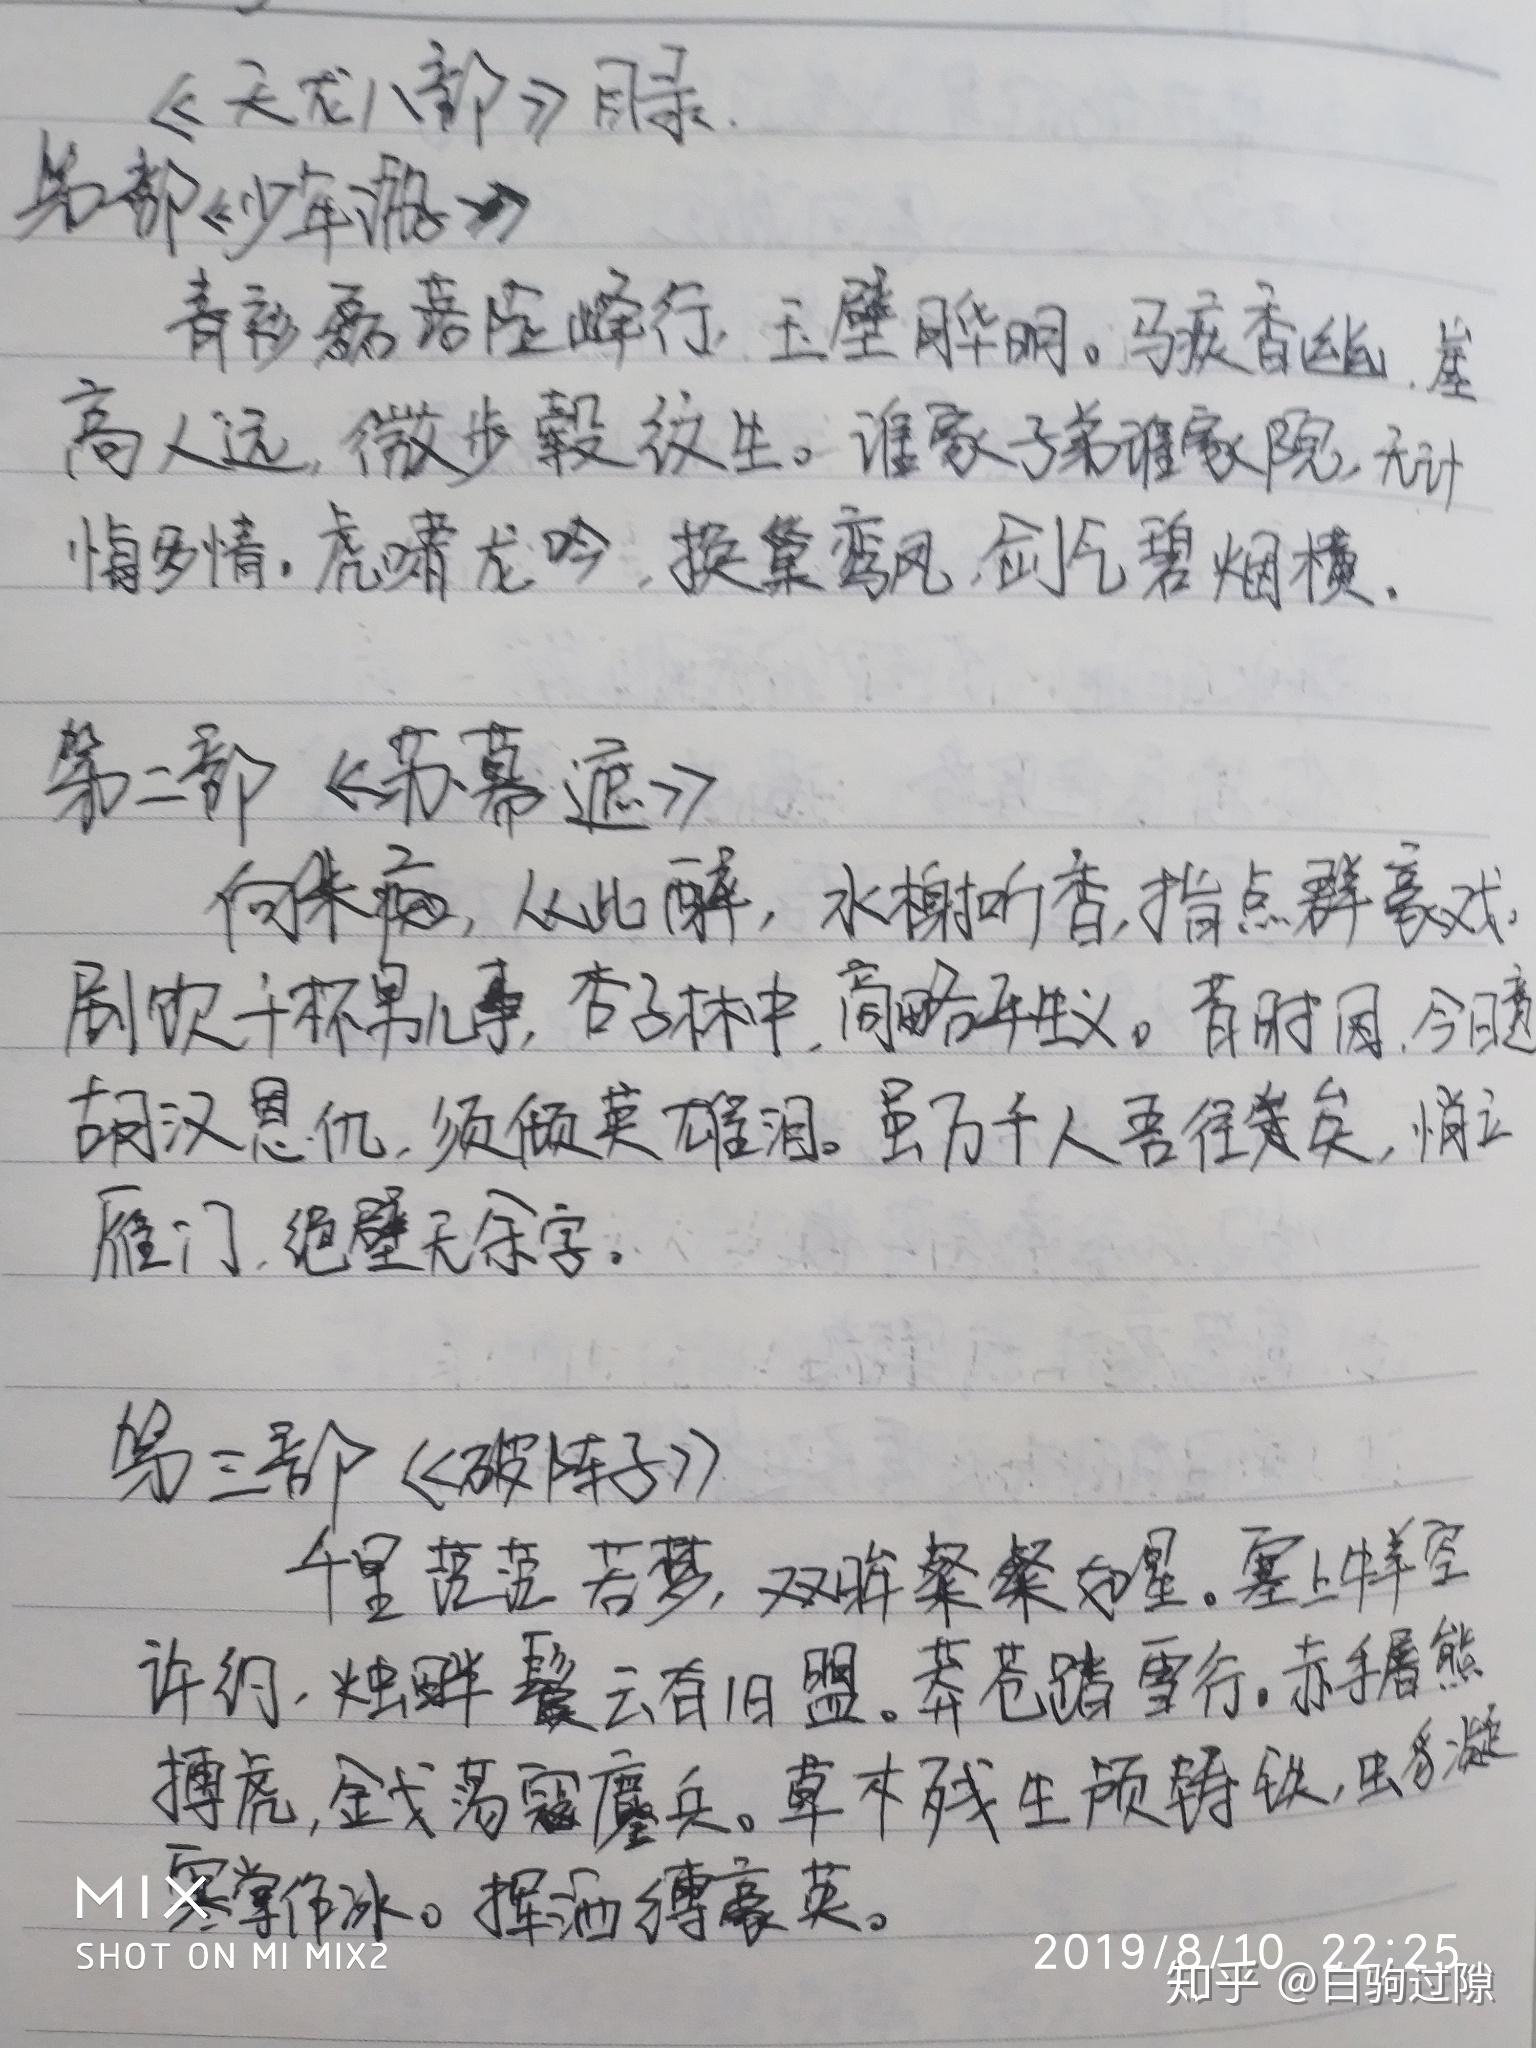 《天龙八部》目录.
第一部《少年游》
青衫磊落险峰行,玉壁月华明。马疾香幽,崖
高人远,微步縠纹生。谁家子弟谁家院,无计
悔多情.虎啸龙吟,换巢鸾凤,剑气碧烟横.
第二部《苏幕遮》
向来痴,从此醉,水榭听香,指点群豪戏.
剧饮千杯男儿事,杏子林中,商略平生义。昔时因,今日意
胡汉恩仇,须倾英雄泪。虽万千人吾往矣,悄立
雁门,绝壁无余字。
第三部《破阵子》
千里茫茫若梦,双眸粲粲如星。塞上牛羊空
许约,烛畔鬓云有旧盟。莽苍踏雪行。赤手屠熊
搏虎,金戈荡寇鏖兵。草木残生颅铸铁,虫豸凝
寒掌作冰。挥洒缚豪英。
MIX
SHOT ON MI MIX2
2019/8/10 22:25
知乎 @白驹过隙